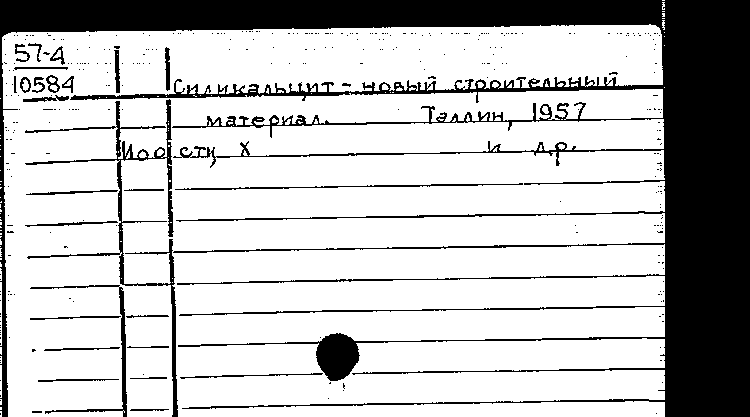 57-4
10584
Силикальцит - новый строительный
материал. Таллин, 1957
Иоости Х и др.